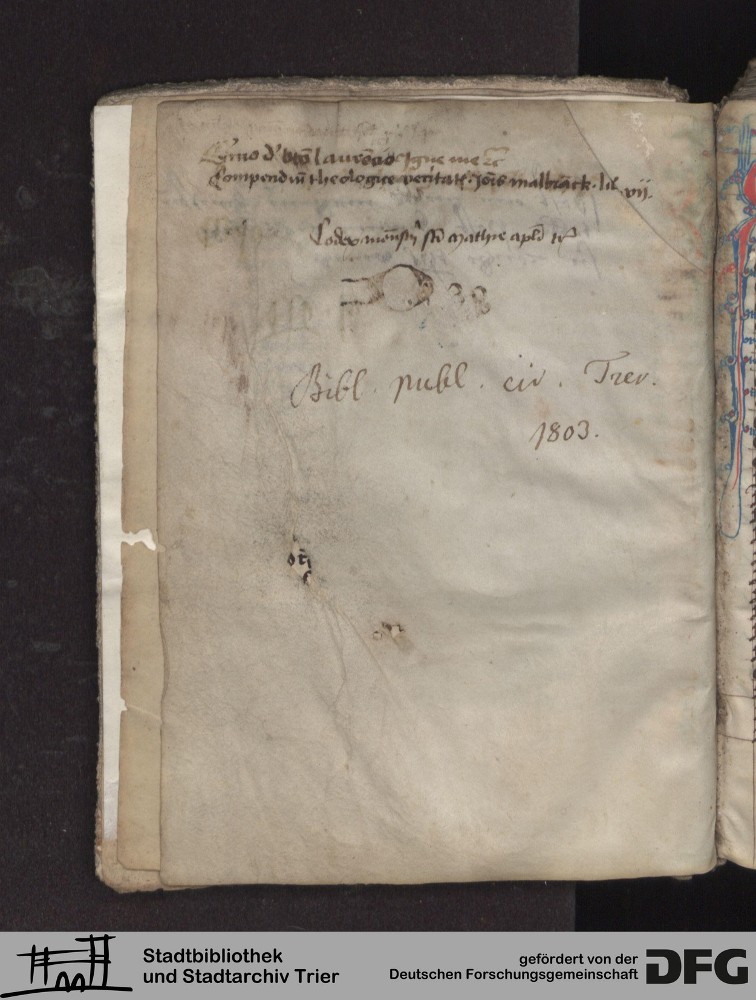 Sermo d' laurēcio Igne me
Compendiū theologice veritatꝭ Joħis malbrāck . lib vii.
Codex monst̄ij sc̄i Mathie apl̄i
Bibl. publ. civ. Trev.
1803.
Stadtbibliothek
und Stadtarchiv Trier
gefördert von der
Deutschen Forschungsgemeinschaft
DFG